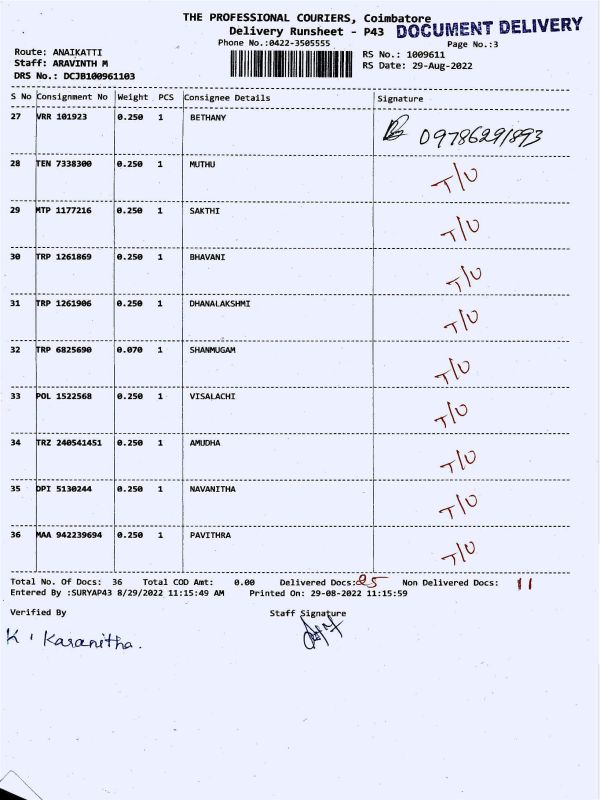 THE PROFESSIONAL COURIERS, Coimbatore
Delivery Runsheet - P43 DOCUMENT DELIVERY
Phone No.:0422-3505555 Page No.:3
Route: ANAIKATTI RS No.: 1009611
Staff: ARAVINTH M RS Date: 29-Aug-2022
DRS No.: DCJB100961103
S No Consignment No Weight PCS Consignee Details Signature
27 VRR 101923 0.250 1 BETHANY 09786291893
28 TEN 7338300 0.250 1 MUTHU T/U
29 MTP 1177216 0.250 1 SAKTHI T/U
30 TRP 1261869 0.250 1 BHAVANI T/U
31 TRP 1261906 0.250 1 DHANALAKSHMI T/U
32 TRP 6825690 0.070 1 SHANMUGAM T/U
33 POL 1522568 0.250 1 VISALACHI T/U
34 TRZ 240541451 0.250 1 AMUDHA T/U
35 DPI 5130244 0.250 1 NAVANITHA T/U
36 MAA 942239694 0.250 1 PAVITHRA T/U
Total No. Of Docs: 36 Total COD Amt: 0.00 Delivered Docs: 25 Non Delivered Docs: 11
Entered By :SURYAP43 8/29/2022 11:15:49 AM Printed On: 29-08-2022 11:15:59
Verified By Staff Signature
K. Karanitha.